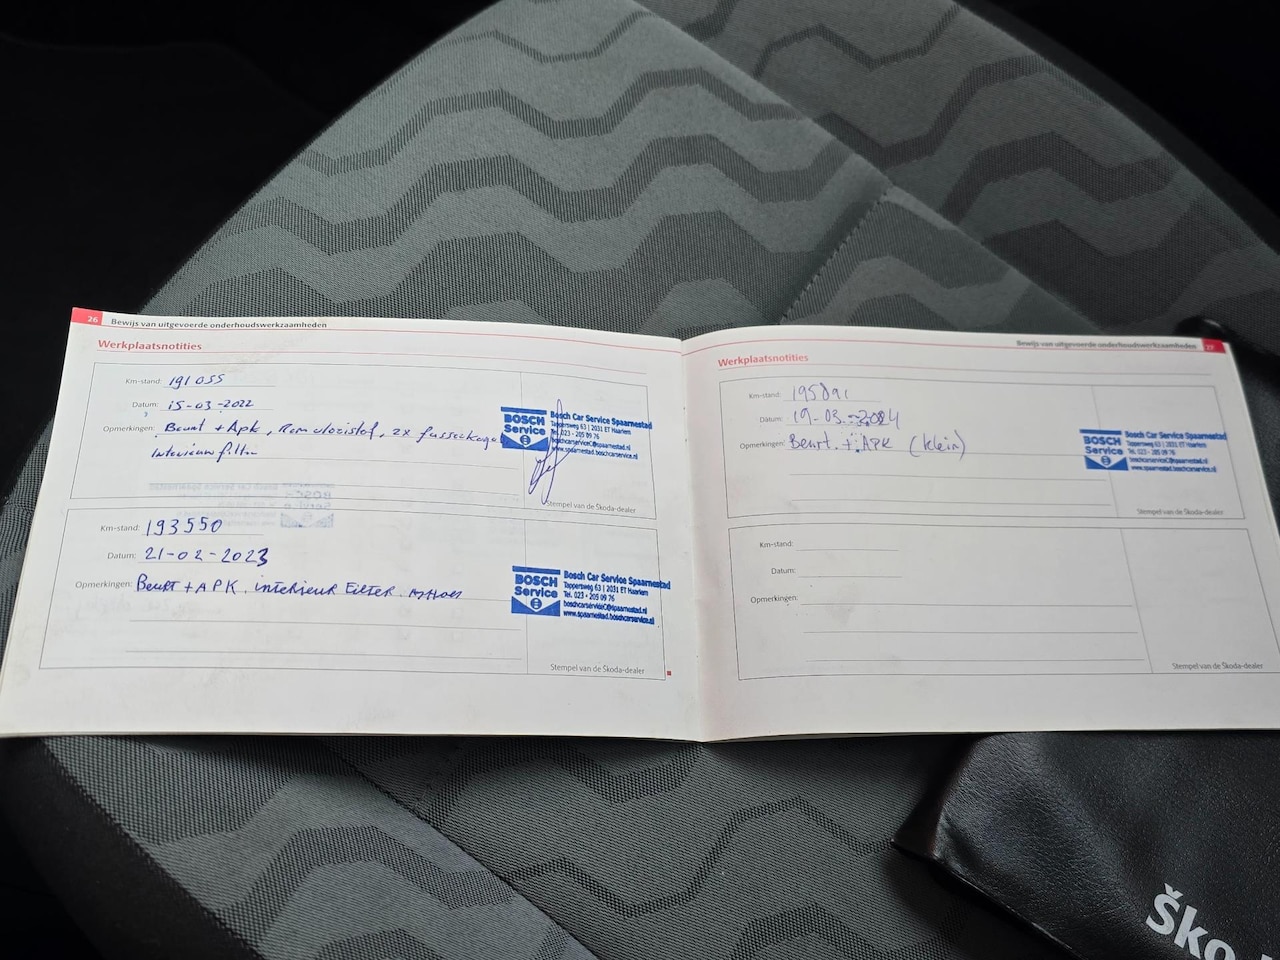 26 Bewijs van uitgevoerde onderhoudswerkzaamheden
Werkplaatsnotities
Km-stand: 191055
Datum: 15-03-2022
Opmerkingen: Beurt + Apk, Rem vloeistof, 2x
Interieur filter
BOSCH
Service
Bosch Car Service Spaarnestad
Tappersweg 63 | 2031 ET Haarlem
Tel. 023 - 205 09 76
boschcarservice@spaarnestad.nl
www.spaarnestad.boschcarservice.nl
Stempel van de Škoda-dealer
Km-stand: 193550
Datum: 21-02-2023
Opmerkingen: Beurt + APK. interieur Filter.
BOSCH
Service
Bosch Car Service Spaarnestad
Tappersweg 63 | 2031 ET Haarlem
Tel. 023 - 205 09 76
boschcarservice@spaarnestad.nl
www.spaarnestad.boschcarservice.nl
Stempel van de Škoda-dealer
Bewijs van uitgevoerde onderhoudswerkzaamheden 27
Werkplaatsnotities
Km-stand: 195891
Datum: 19-03-2024
Opmerkingen: Beurt + APK (klein)
BOSCH
Service
Bosch Car Service Spaarnestad
Tappersweg 63 | 2031 ET Haarlem
Tel. 023 - 205 09 76
boschcarservice@spaarnestad.nl
www.spaarnestad.boschcarservice.nl
Stempel van de Škoda-dealer
Km-stand:
Datum:
Opmerkingen:
Stempel van de Škoda-dealer